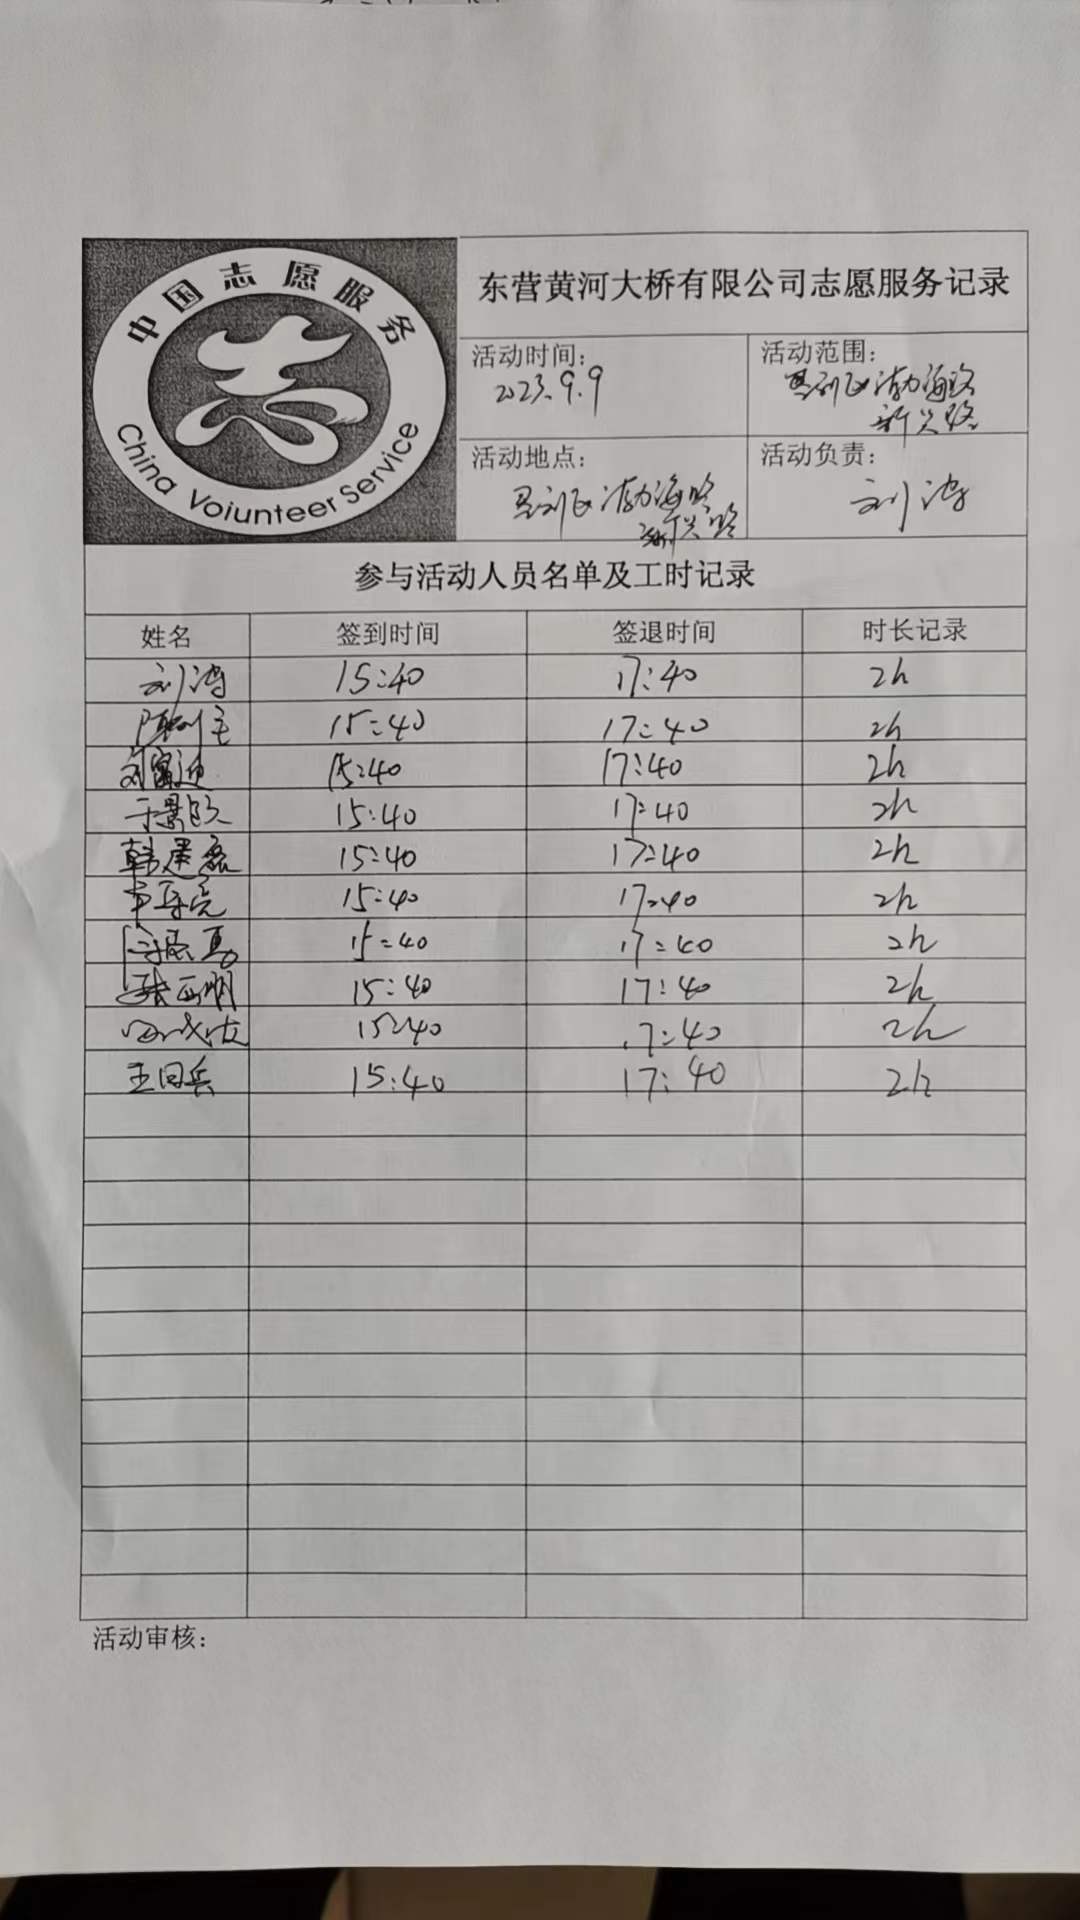 中国志愿服务
China Voiunteer Service
东营黄河大桥有限公司志愿服务记录
活动时间：
2023.9.9
活动范围：
垦利区渤海路
新兴路
活动地点：
垦利区渤海路
新兴路
活动负责：
刘涛
参与活动人员名单及工时记录
姓名 签到时间 签退时间 时长记录
刘涛 15:40 17:40 2h
15:40 17:40 2h
15:40 17:40 2h
15:40 17:40 2h
韩建磊 15:40 17:40 2h
15:40 17:40 2h
15:40 17:40 2h
张正明 15:40 17:40 2h
15:40 17:40 2h
王同兵 15:40 17:40 2h
活动审核：